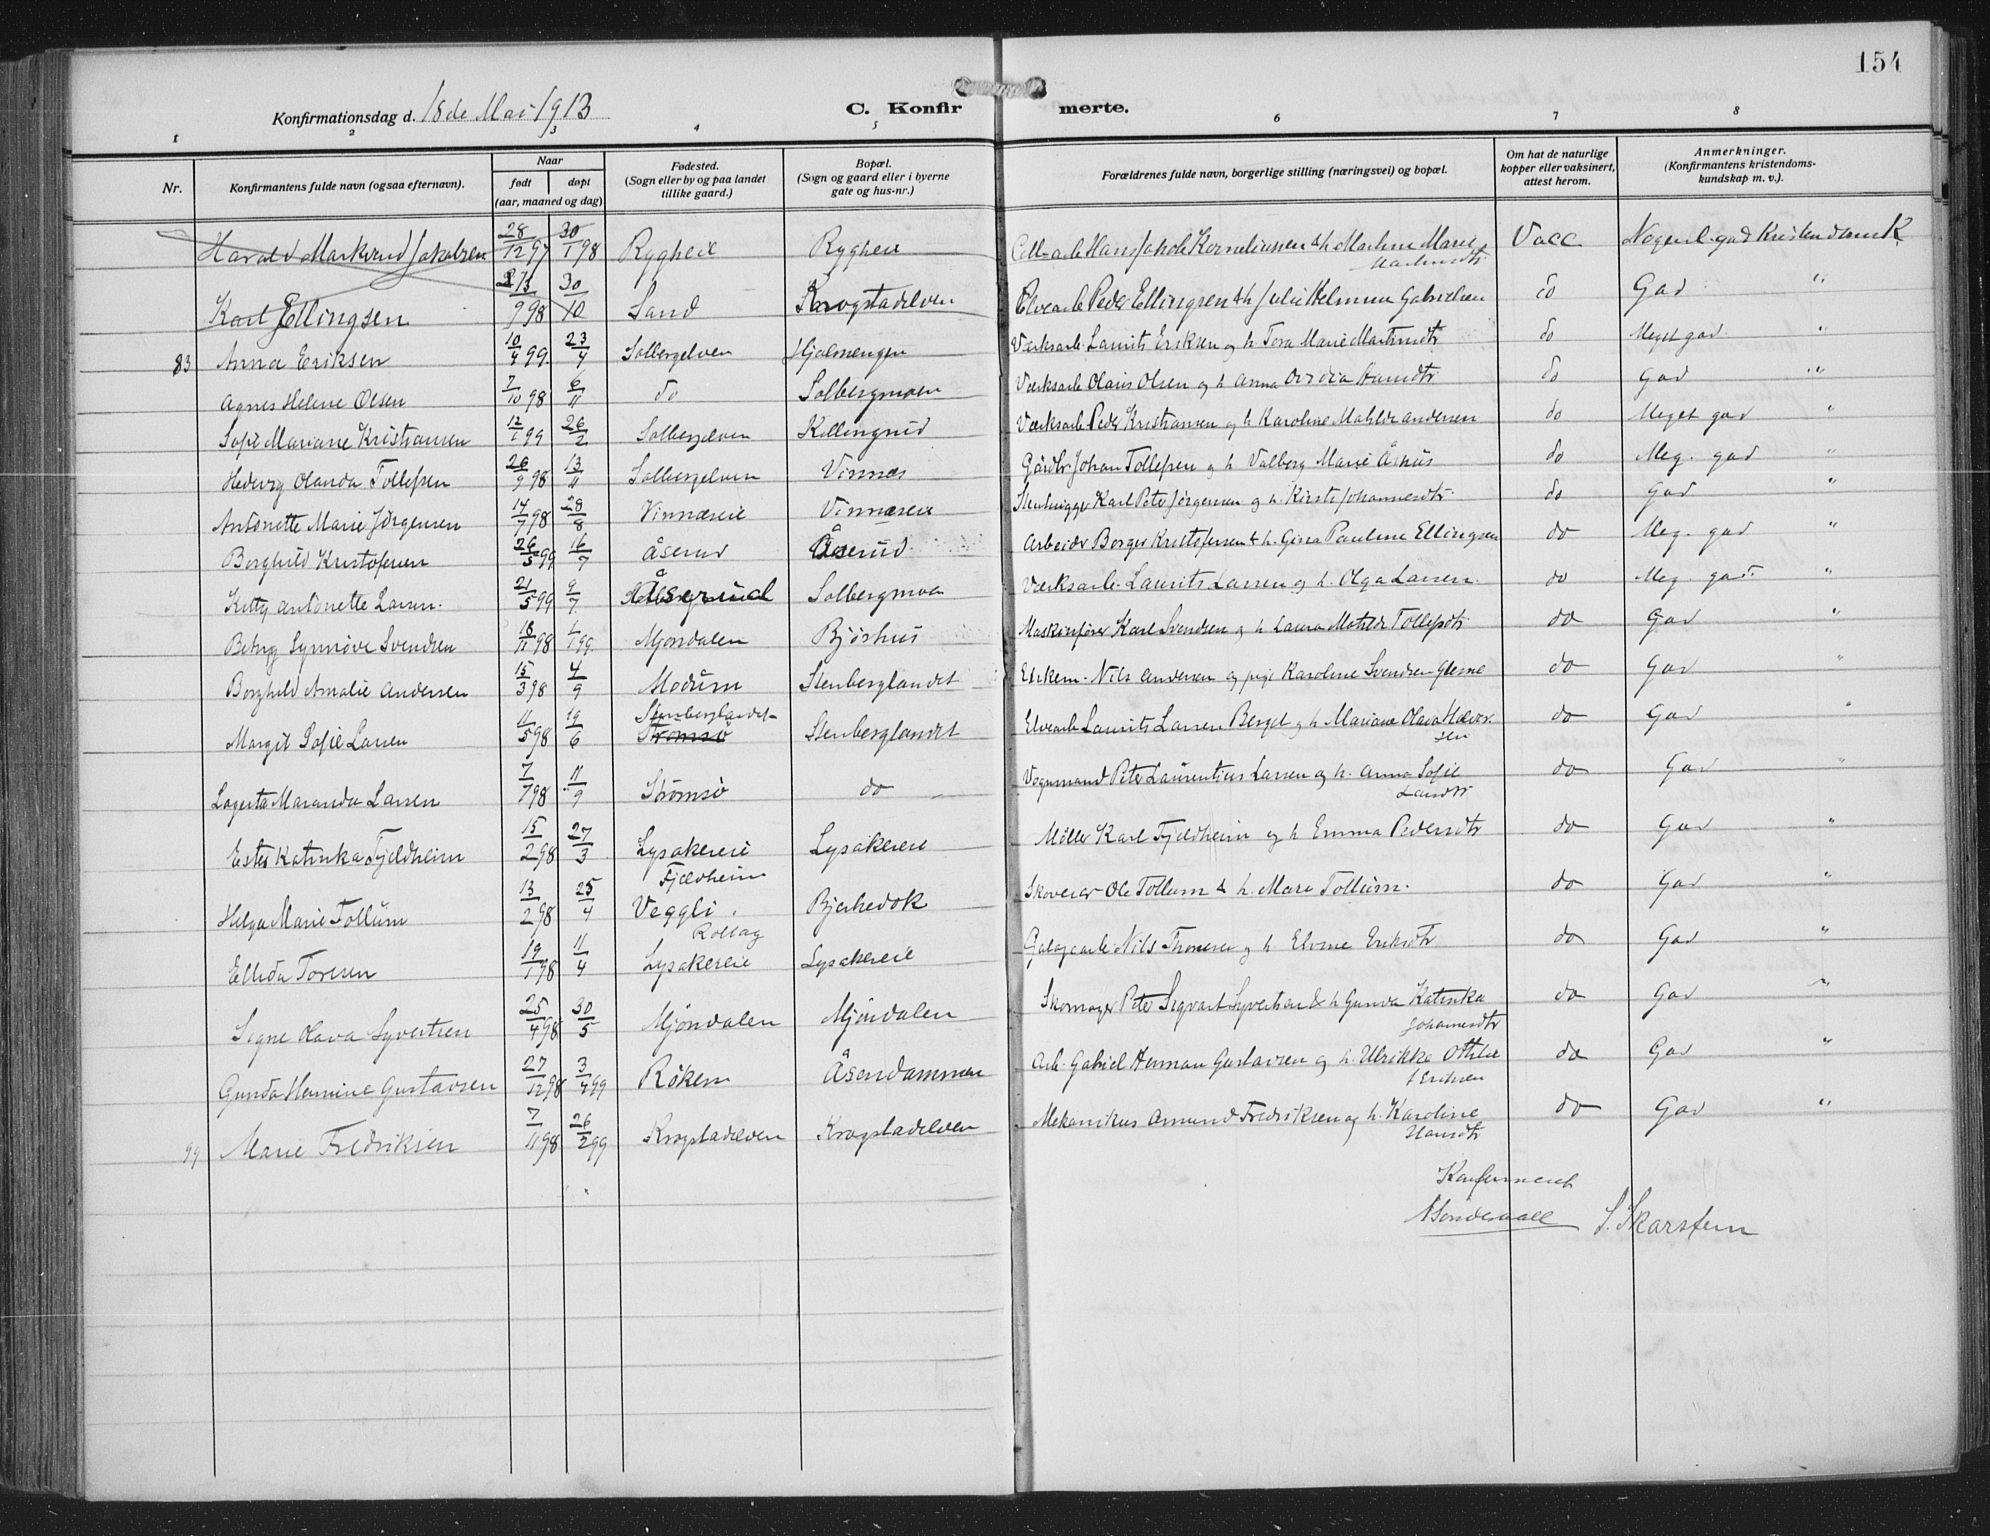 154
Konfirmationsdag d. 18de Mai 1913
C. Konfirmerte.
1 2 3 4 5 6 7 8
Nr.
Konfirmantens fulde navn (ogsaa efternavn).
Naar
født døpt
(aar, maaned og dag)
Fødested.
(Sogn eller by og paa landet
tillike gaard.)
Bopæl.
(Sogn og gaard eller i byerne
gate og hus-nr.)
Forældrenes fulde navn, borgerlige stilling (næringsvei) og bopæl.
Om hat de naturlige
kopper eller vaksinert,
attest herom.
Anmerkninger.
(Konfirmantens kristendoms-
kundskap m. v.).
Harald Jakobsen 28/12 97 30/1 98 Rygheie Rygheie Hans Jakob Korneliussen & h. Marie Vacc.
Karl Ellingsen 9 98 30/10 Sand Krogstadelven Elvearb. Peder Ellingsen & h. Julie Gabrielsen do God "
83 Anna Eriksen 10/4 99. 23/4 Solbergelven Hjalmengen Værksarb. Laurits Eriksen og h. Tora Marie do Meget god "
Agnes Helene Olsen 7/10 98 6/11 do Solbergmoen Værksarb. Olaus Olsen og h. Anna do God "
Sofie Mariane Kristiansen 12/1 99 26/2 Solbergelven Killingrud Værksarb. Peder Kristiansen og h. Karoline Mathilde Andersen do Meget god "
Hedevig Olanda Tollefsen 26/9 98 13/11 Solbergelven Vinnæs Gårdbr. Johan Tollefsen og h. Valborg Marie do Meg. god "
Antonette Marie Jørgensen 14/7 98 28/8 Vinnæseie Vinnæseie Stenhugger Karl Peter Jørgensen og h. Kirsti Johannesdtr. do God "
Borghild Kristofersen 26/5 99 16/7 Åserud Åserud Arbeider Borger Kristofersen & h. Gina Pauline Ellingsen do Meg. god "
Kitty Antonette Larsen. 21/5 99 9/7 Åserud Solbergmoen Værksarb. Laurits Larsen og h. Olga Larsen. do Meg. god. "
Betzy Synnøve Svendsen 18/11 98 1/1 99 Mjøndalen Bjøshus Maskinfører Karl Svendsen og h. Laura Matilde Tollefsdtr. do God "
Borghild Amalie Andersen 15/3 98 4/9 Modum Stenberglandet Nils Andersen og pige Karoline Svendsen do God "
Margit Sofie Larsen 11/5 98 19/6 Stenberglandet Strømsø Stenberglandet Elvearb. Laurits Larsen Berget og h. Mariane Olava Halvorsen do God "
Lagerta Maranda Larsen 7/7 98 11/9 Strømsø do Vognmand Peter Laurentius Larsen og h. Anna Sofie Larsdtr do God "
Ester Katinka Fjeldheim 15/2 98 27/3 Lysakereie Fjeldheim Lysakereie Møller Karl Fjeldheim og h. Emma Pedersdtr do God "
Helga Marie Tollum 13/2 98 25/4 Veggli. Rollag Bjerkedok Ole Tollum & h. Mari Tollum. do God "
Ellida Toresen 19/1 98 11/4 Lysakereie Lysakereie Nils Thoresen og h. Eriksdtr do God "
Signe Olava Syvertsen 25/4 98 30/5 Mjøndalen Mjøndalen Skomager Peter Sigvart Syvertsen & h. Gunda Katinka Johannesdtr do God "
Gunda Hermine Gustavsen 27/12 98 3/4 99 Røken Åsendammen Arb. Gabriel Herman Gustavsen og h. Ulrikke Othilie Eriksen do God "
99 Marie Fredriksen 7/11 98 26/2 99 Krogstadelven Krogstadelven Mekanikus Amund Fredriksen og h. Karoline Hansdtr do God "
Konfirmeret
S. Skarstein